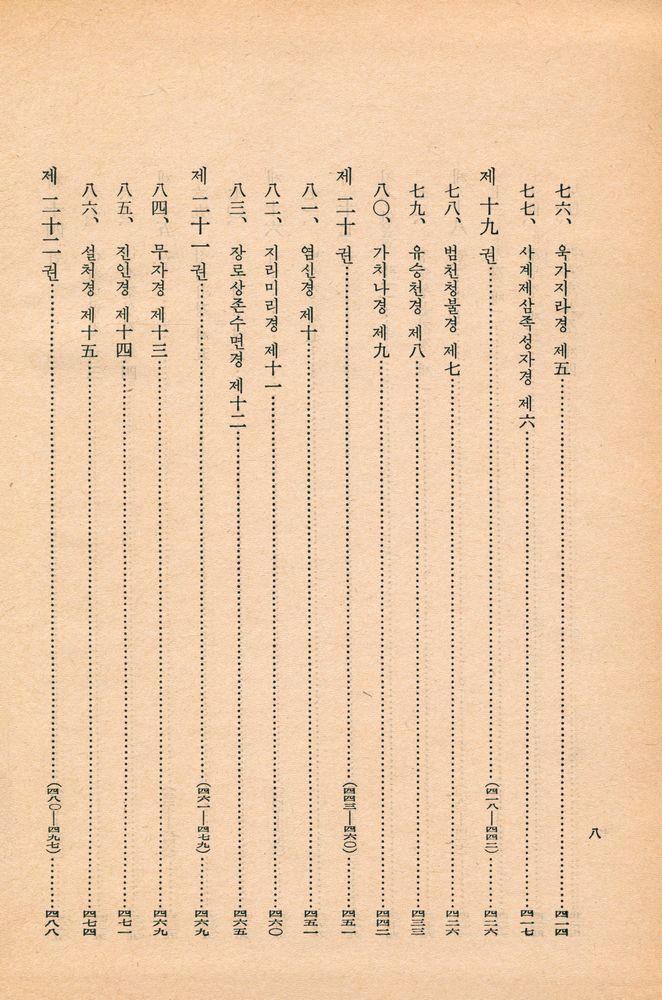 八
七六、 욱가지라경 제五……四一四
七七、 사계제삼족성자경 제六……四一七
제 十九 권……(四一八—四四二)……四二六
七八、 범천청불경 제七……四二六
七九、 유승천경 제八……四三三
八〇、 가치나경 제九……四四二
제 二十 권……(四四三—四六〇)……四五一
八一、 염신경 제十……四五一
八二、 지리미리경 제十一……四六〇
八三、 장로상존수면경 제十二……四六五
제 二十一 권……(四六一—四七九)……四六九
八四、 무자경 제十三……四六九
八五、 진인경 제十四……四七一
八六、 설처경 제十五……四七四
제 二十二 권……(四八〇—四九七)……四八八